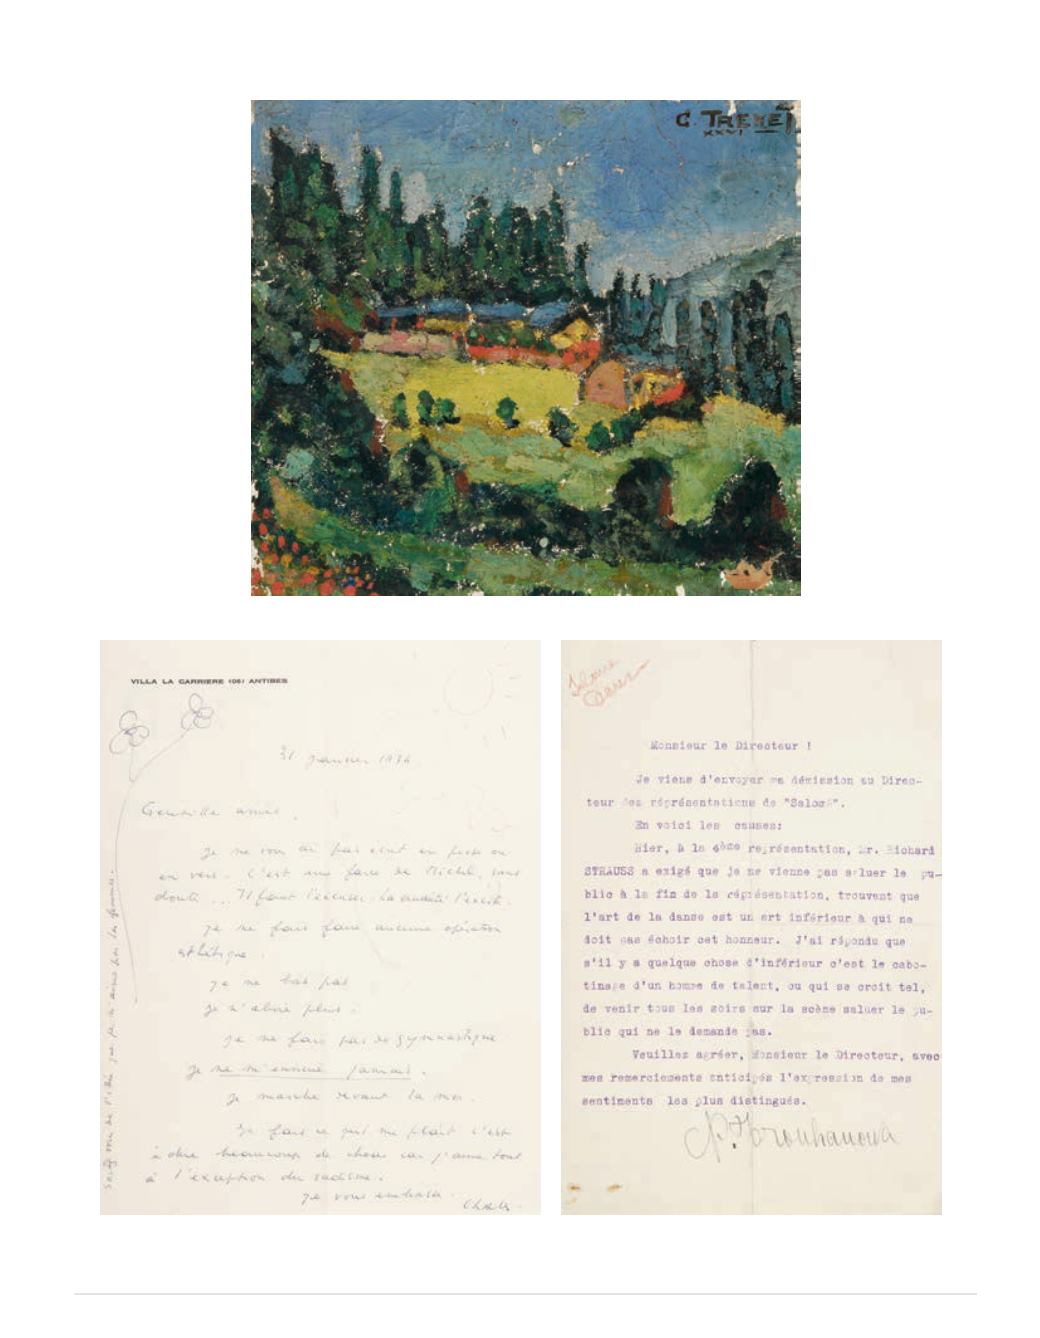 C. TRENET
XXVI
VILLA LA GARRIERE (06) ANTIBES
31 janvier 1976
Gentille amie,
Je ne vous ai pas écrit en prose ou
en vers. C'est une faute de Michel, sans
doute ... Il faut l'excuser.
Je ne fais faire aucune opération
esthétique.
Je ne bois pas
Je n'aime plus.
Je ne fais pas de gymnastique
Je ne m'ennuie jamais.
Je marche devant la mer.
Je fais ce qui me plaît c'est
à dire beaucoup de choses car j'aime tout
à l'exception du sadisme.
Je vous embrasse.
Charles
que je n'aime pas les femmes.
Salomé
Danse
Monsieur le Directeur !
Je viens d'envoyer ma démission au Direc-
teur des représentations de "Salomé".
En voici les causes:
Hier, à la 4ème représentation, Mr. Richard
STRAUSS a exigé que je ne vienne pas saluer le pu-
blic à la fin de la représentation, trouvant que
l'art de la danse est un art inférieur à qui ne
doit pas échoir cet honneur. J'ai répondu que
s'il y a quelque chose d'inférieur c'est le cabo-
tinage d'un homme de talent, ou qui se croit tel,
de venir tous les soirs sur la scène saluer le pu-
blic qui ne le demande pas.
Veuillez agréer, Monsieur le Directeur, avec
mes remerciements anticipés l'expression de mes
sentiments les plus distingués.
N. Trouhanova